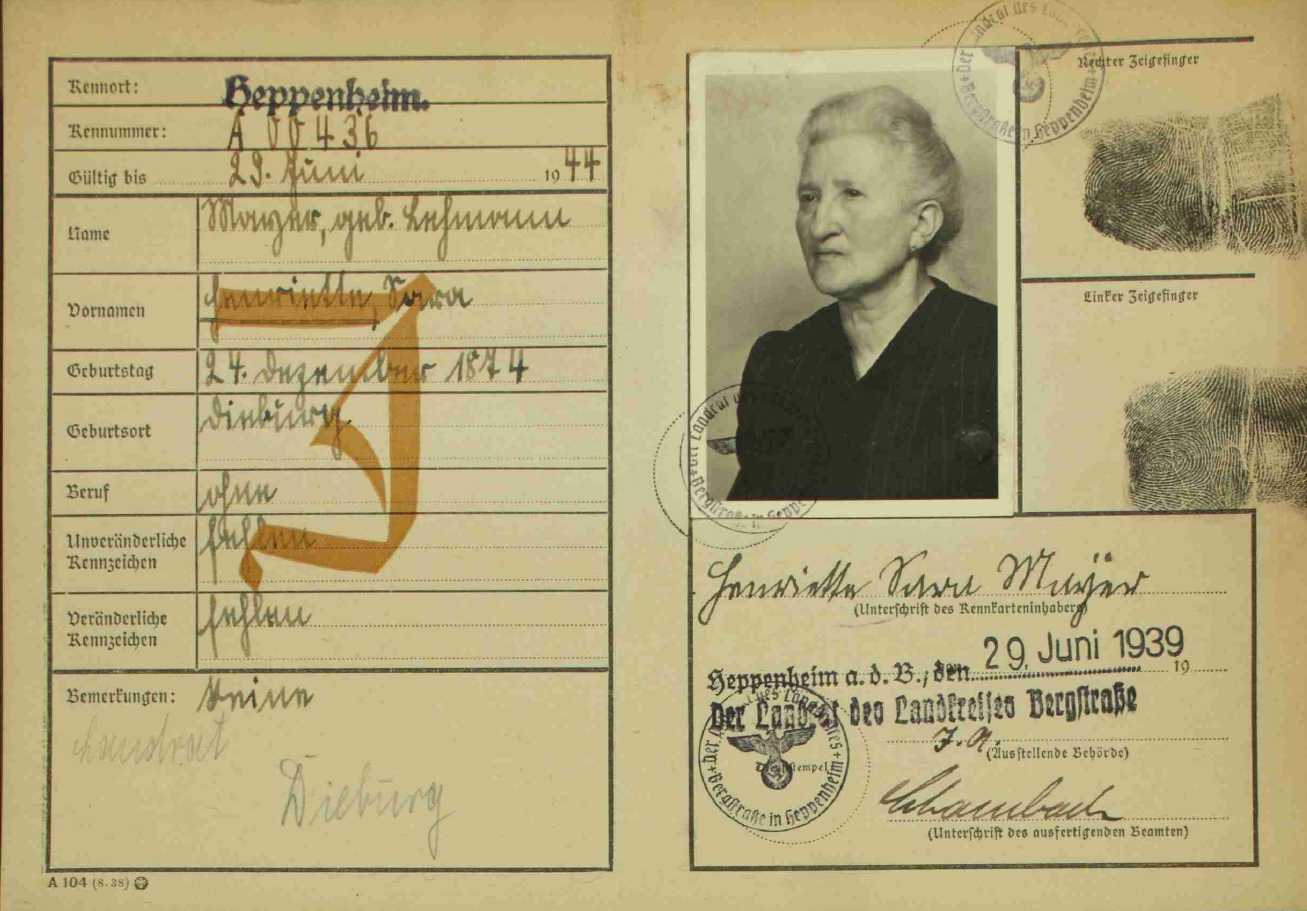 Kennort: Heppenheim.
Kennummer: A 00436
Gültig bis 29. Juni 1944
Name Mayer, geb. Lehmann
Vornamen Henriette, Sara
Geburtstag 24. Dezember 1874
Geburtsort Dieburg
Beruf ohne
Unveränderliche Kennzeichen fehlen
Veränderliche Kennzeichen fehlen
Bemerkungen: Keine
Landrat
Dieburg
J
A 104 (8. 38)
Rechter Zeigefinger
Linker Zeigefinger
Der Landrat des Landkreises Bergstraße in Heppenheim
Der Landrat des
Bergstraße in Heppenheim
Henriette Sara Mayer
(Unterschrift des Kennkarteninhabers)
Heppenheim a. d. B., den 29. Juni 1939 19
Der Landrat des Landkreises Bergstraße
J. A.
(Ausstellende Behörde)
Dienststempel
Der Landrat des Landkreises Bergstraße in Heppenheim
(Unterschrift des ausfertigenden Beamten)